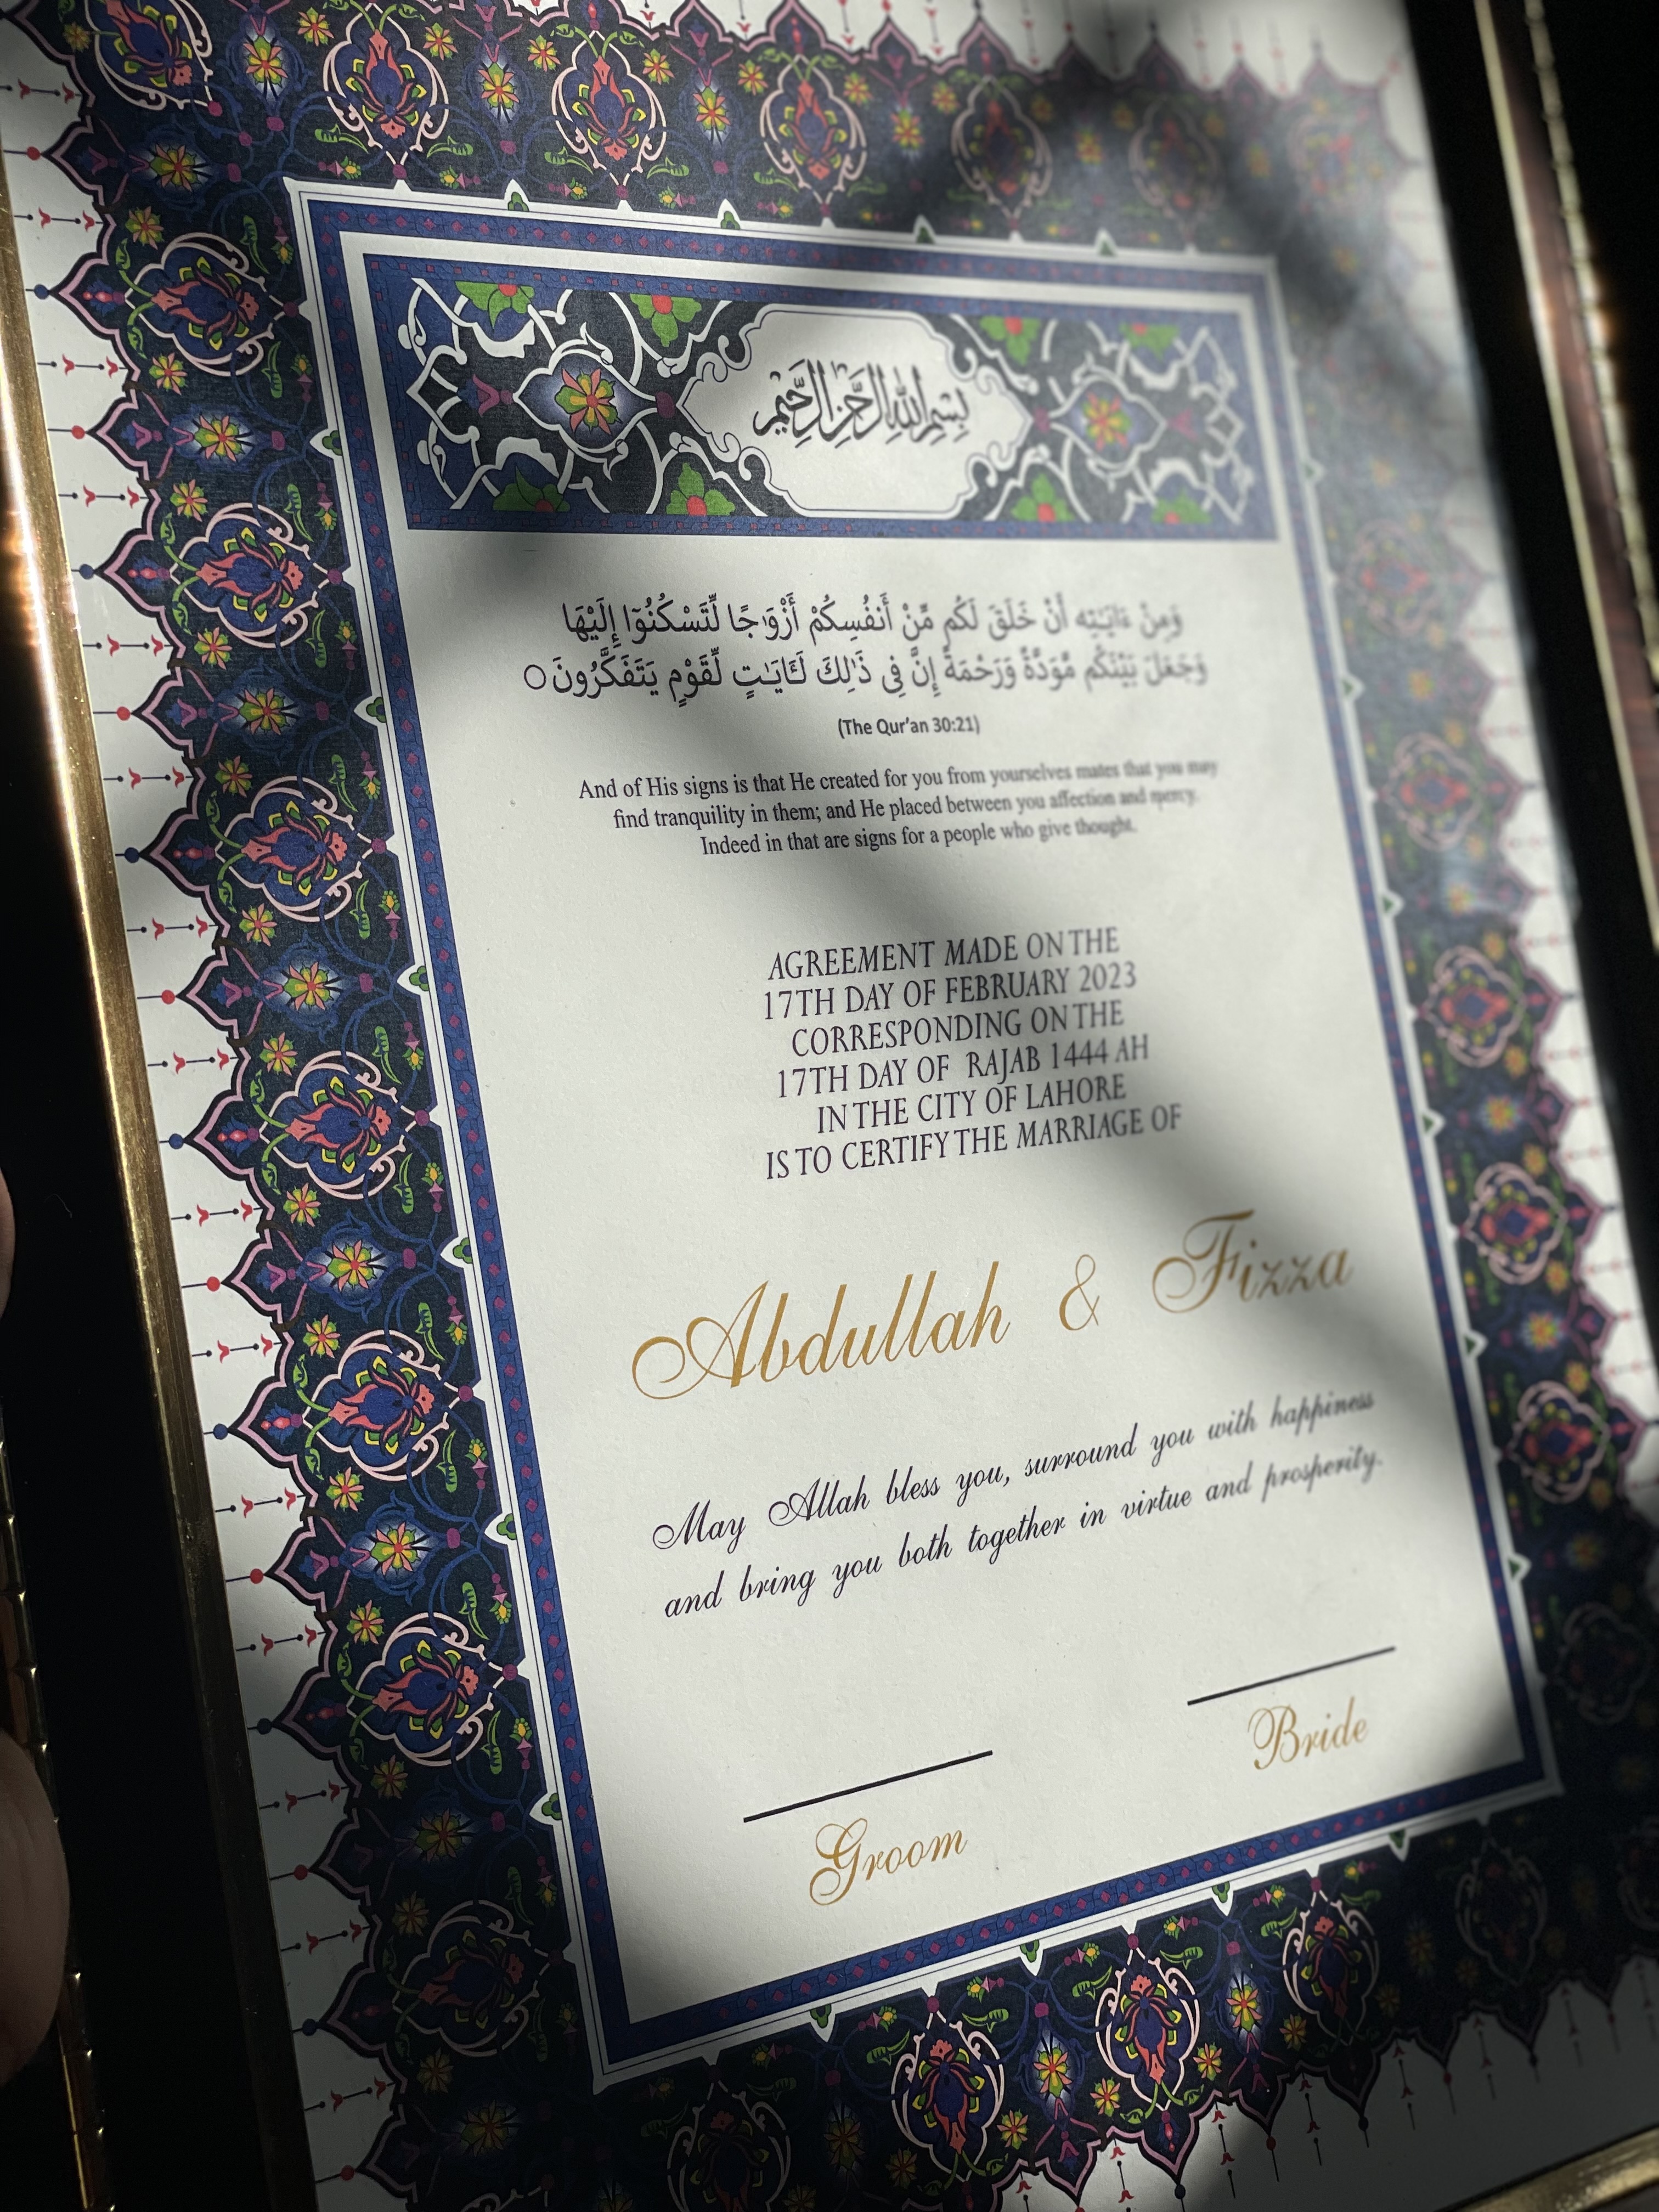 بِسْمِ اللَّهِ الرَّحْمَٰنِ الرَّحِيمِ
وَمِنْ ءَايَـٰتِهِ أَنْ خَلَقَ لَكُم مِّنْ أَنفُسِكُمْ أَزْوَٰجًا لِّتَسْكُنُوٓا إِلَيْهَا
وَجَعَلَ بَيْنَكُم مَّوَدَّةً وَرَحْمَةً إِنَّ فِى ذَٰلِكَ لَـَٔايَـٰتٍ لِّقَوْمٍ يَتَفَكَّرُونَ ○
(The Qur'an 30:21)
And of His signs is that He created for you from yourselves mates that you may
find tranquility in them; and He placed between you affection and mercy.
Indeed in that are signs for a people who give thought.
AGREEMENT MADE ON THE
17TH DAY OF FEBRUARY 2023
CORRESPONDING ON THE
17TH DAY OF RAJAB 1444 AH
IN THE CITY OF LAHORE
IS TO CERTIFY THE MARRIAGE OF
Abdullah & Fizza
May Allah bless you, surround you with happiness
and bring you both together in virtue and prosperity.
Groom Bride